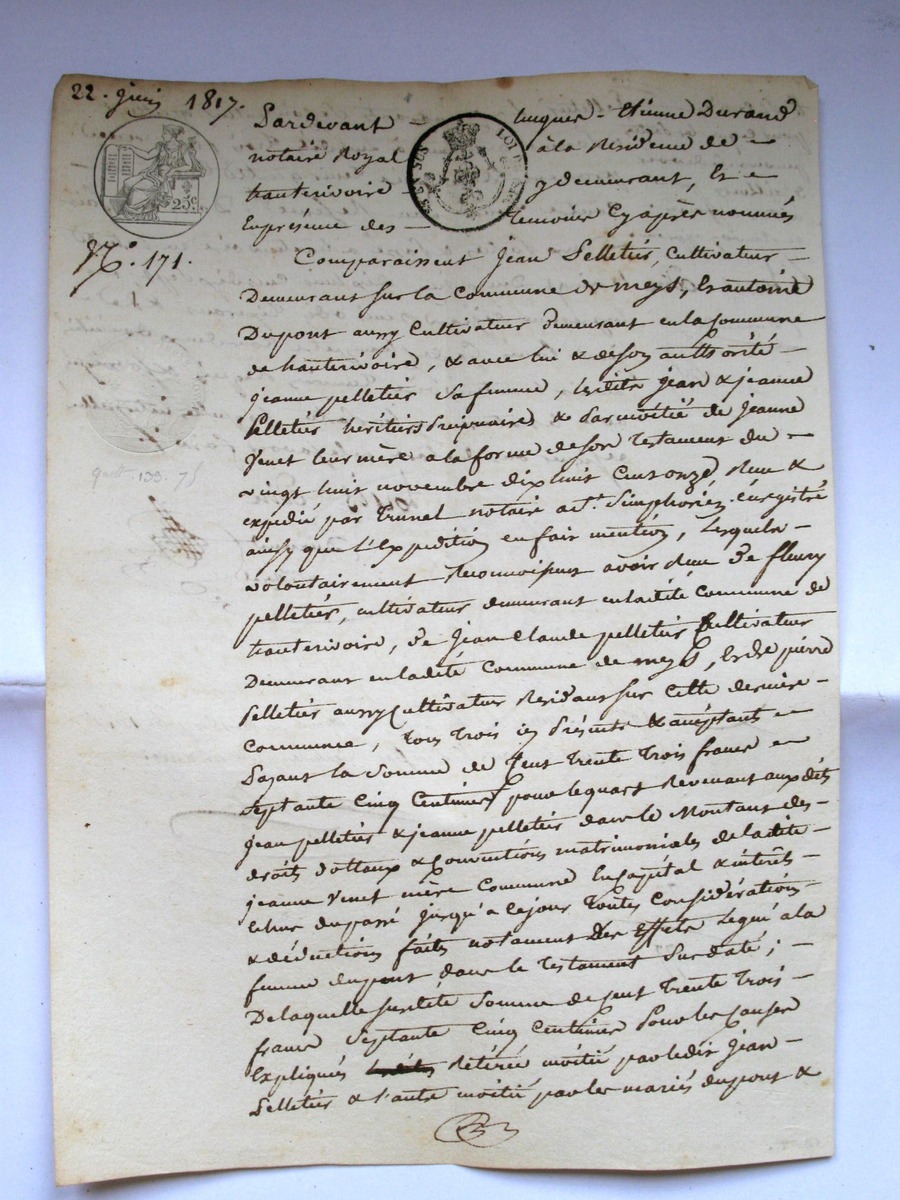 22. juin 1817.
Pardevant hugues-Etienne Durand
notaire Royal à la Residence de
hauterivoire y demeurant, et
En présence des temoins Cy après nommés
25c
N.° 171.
Comparaissent Jean Pelletier, Cultivateur
Demeurant sur la Commune de meys, et antoine
Dupont aussy Cultivateur demeurant en la Commune
de hauterivoire, & avec lui & de son authorité
jeanne pelletier sa femme, lesdits jean & jeanne
Pelletier héritiers & par moitié de jeanne
Venet leur mère a la forme de son Testament du
vingt huit novembre dix huit Cent onze, Reçu &
expédié par notaire a St. Simphorien, enregistré
ainsy que l'Expedition en fait mention, Lesquels
volontairement Reconnoissent avoir Reçu De fleury
pelletier, cultivateur demeurant en ladite Commune de
hauterivoire, De Jean Claude pelletier Cultivateur
Demeurant en ladite Commune de meys, et De pierre
Pelletier aussy Cultivateur Residant sur Cette derniere
Commune, tous trois ici Présents & acceptants
Payant la Somme de Cent trente trois francs
Septante Cinq Centimes pour le quart Revenant aux dits
Jean pelletier & jeanne pelletier dans le Montant des
droits dottaux & Conventions matrimoniales de ladite
jeanne Venet mère Commune En Capital & intérêts
Echus du passé jusqu'a ce jour toutes Considérations
& déductions faites notament des Effets Legué a la
femme dupont dans le Testament Susdaté;
De laquelle susdite Somme de Cent trente trois
francs Septante Cinq Centimes Pour les Causes
Expliqués Retirée moitié par ledit Jean
Pelletier & l'autre moitié par les mariés dupont &